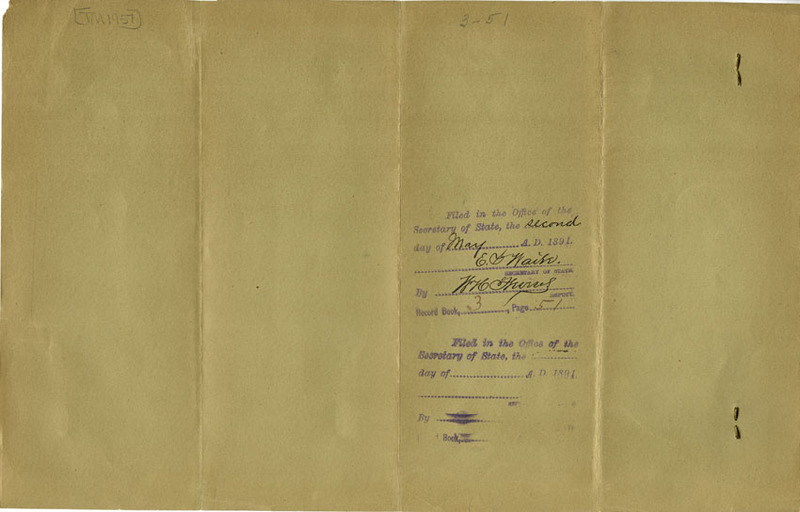 [TM1957]
3-51
Filed in the Office of the
Secretary of State, the second
day of May A. D. 1891.
E. G. Waite.
SECRETARY OF STATE.
By W H
DEPUTY.
Record Book, 3, Page 51
Filed in the Office of the
Secretary of State, the
day of A. D. 1891.
By
Book,